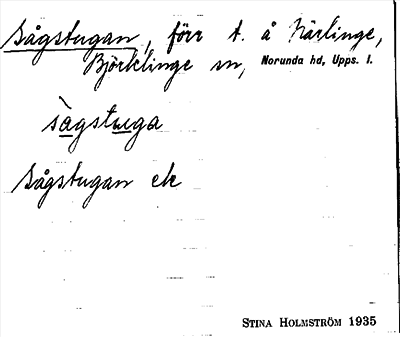 Sågstugan, förr t. å Närlinge,
Björklinge sn, Norunda hd, Upps. l.
sågstuga
Sågstugan ek
STINA HOLMSTRÖM 1935